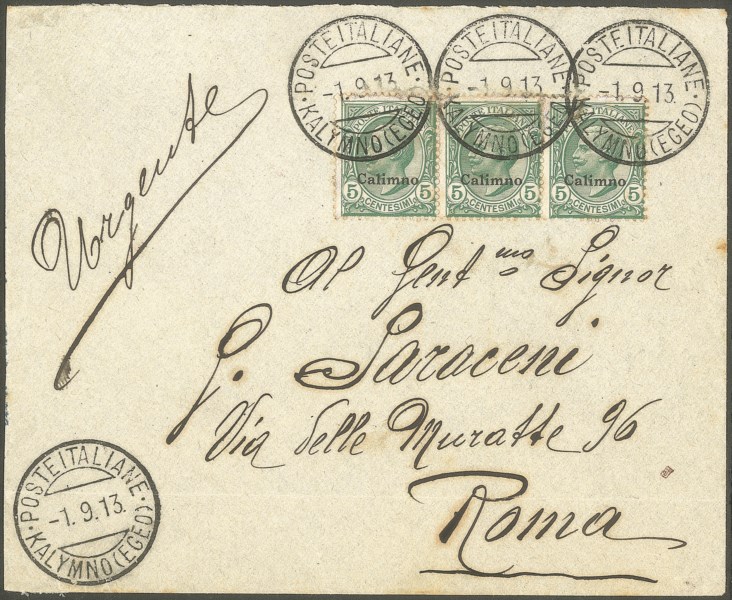 POSTE ITALIANE
-1.9.13.
KALYMNO (EGEO)
POSTE ITALIANE
-1.9.13.
KALYMNO (EGEO)
POSTE ITALIANE
-1.9.13.
KALYMNO (EGEO)
POSTE ITALIANE
Calimno
5 CENTESIMI 5
POSTE ITALIANE
Calimno
5 CENTESIMI 5
POSTE ITALIANE
Calimno
5 CENTESIMI 5
Urgente
Al Gent mo Signor
G. Saraceni
Via delle Muratte 96
Roma
POSTE ITALIANE
-1.9.13.
KALYMNO (EGEO)